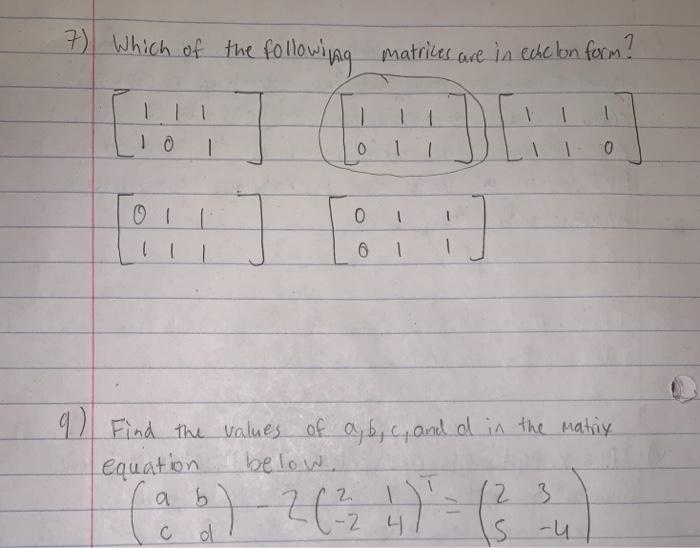 7) Which of the following matrices are in echelon form?
[1 1 1] [1 1 1] [1 1 1]
[1 0 1] [0 1 1] [1 1 0]
[0 1 1] [0 1 1]
[1 1 1] [0 1 1]
9) Find the values of a, b, c, and d in the matrix
equation below.
(a b) - 2(2 1)ᵀ = (2 3)
(c d) (-2 4) (5 -4)